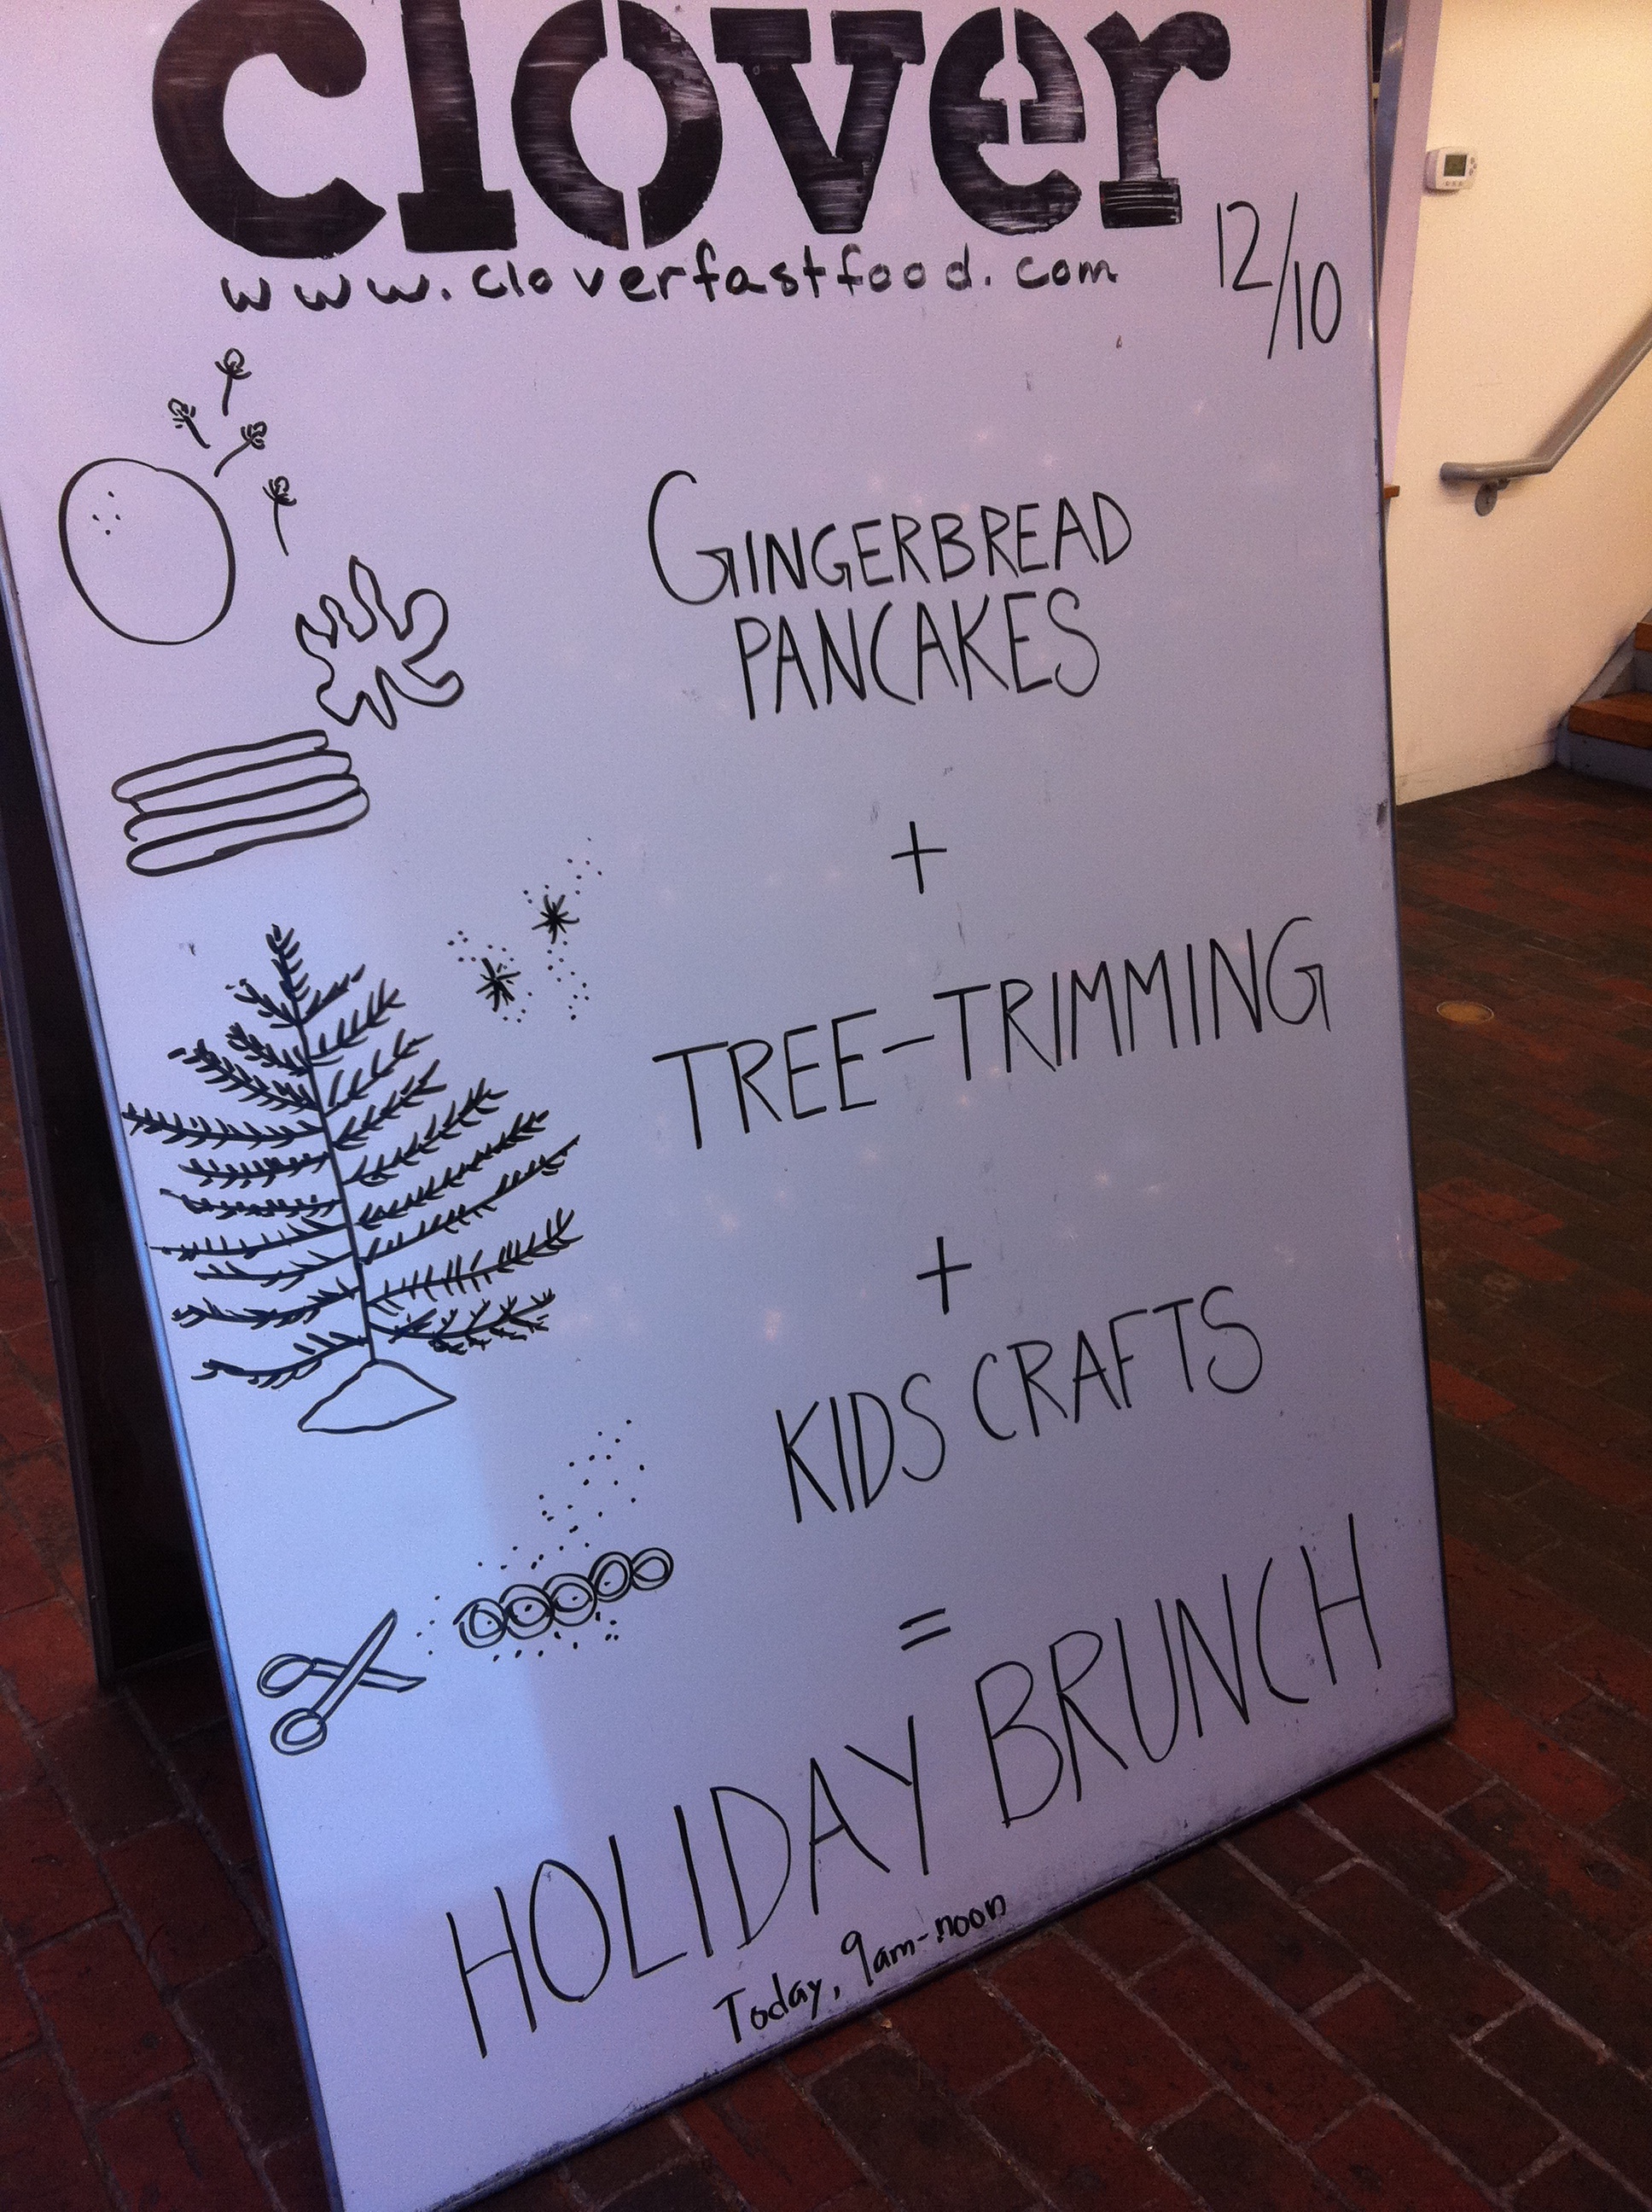 clover
www.cloverfastfood.com
12/10
GINGERBREAD
PANCAKES
+
TREE-TRIMMING
+
KIDS CRAFTS
=
HOLIDAY BRUNCH
Today, 9am-noon